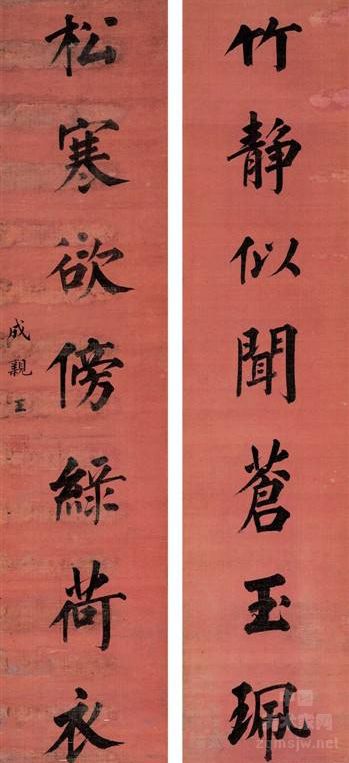 竹静似聞蒼玉珮
松寒欲傍緑荷衣
成親王
zgmsjw.net